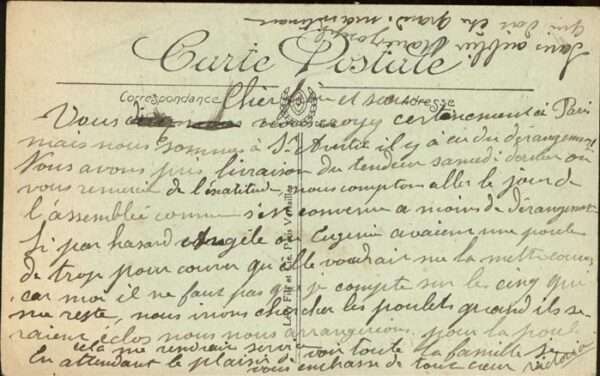 Sans oublier Marie Joseph
qui doit être grand maintenant
Carte Postale
Correspondance
Adresse
Cher et
Vous nous croyez certainement à Paris
mais nous sommes à St Avertin il y a eu du dérangement
Nous avons pris livraison du tendeur samedi dernier on
vous remercie de l'exatitude, nous comptons aller le jour de
l'assemblée comme s'est convenu a moins de dérangement
Si par hasard Angèle ou Eugenie avaient une poule
de trop pour couver qu'elle voudrait me la mettre couver
car moi il ne faut pas que je compte sur les cinq qui
me reste, nous irons chercher les poulets quand ils se-
raient éclos nous nous arrangerions pour la poule
cela me rendrait service
En attendant le plaisir de voir toute la famille je
vous embrasse de tout cœur Victoria
Lévy Fils et Cie, Paris Versailles